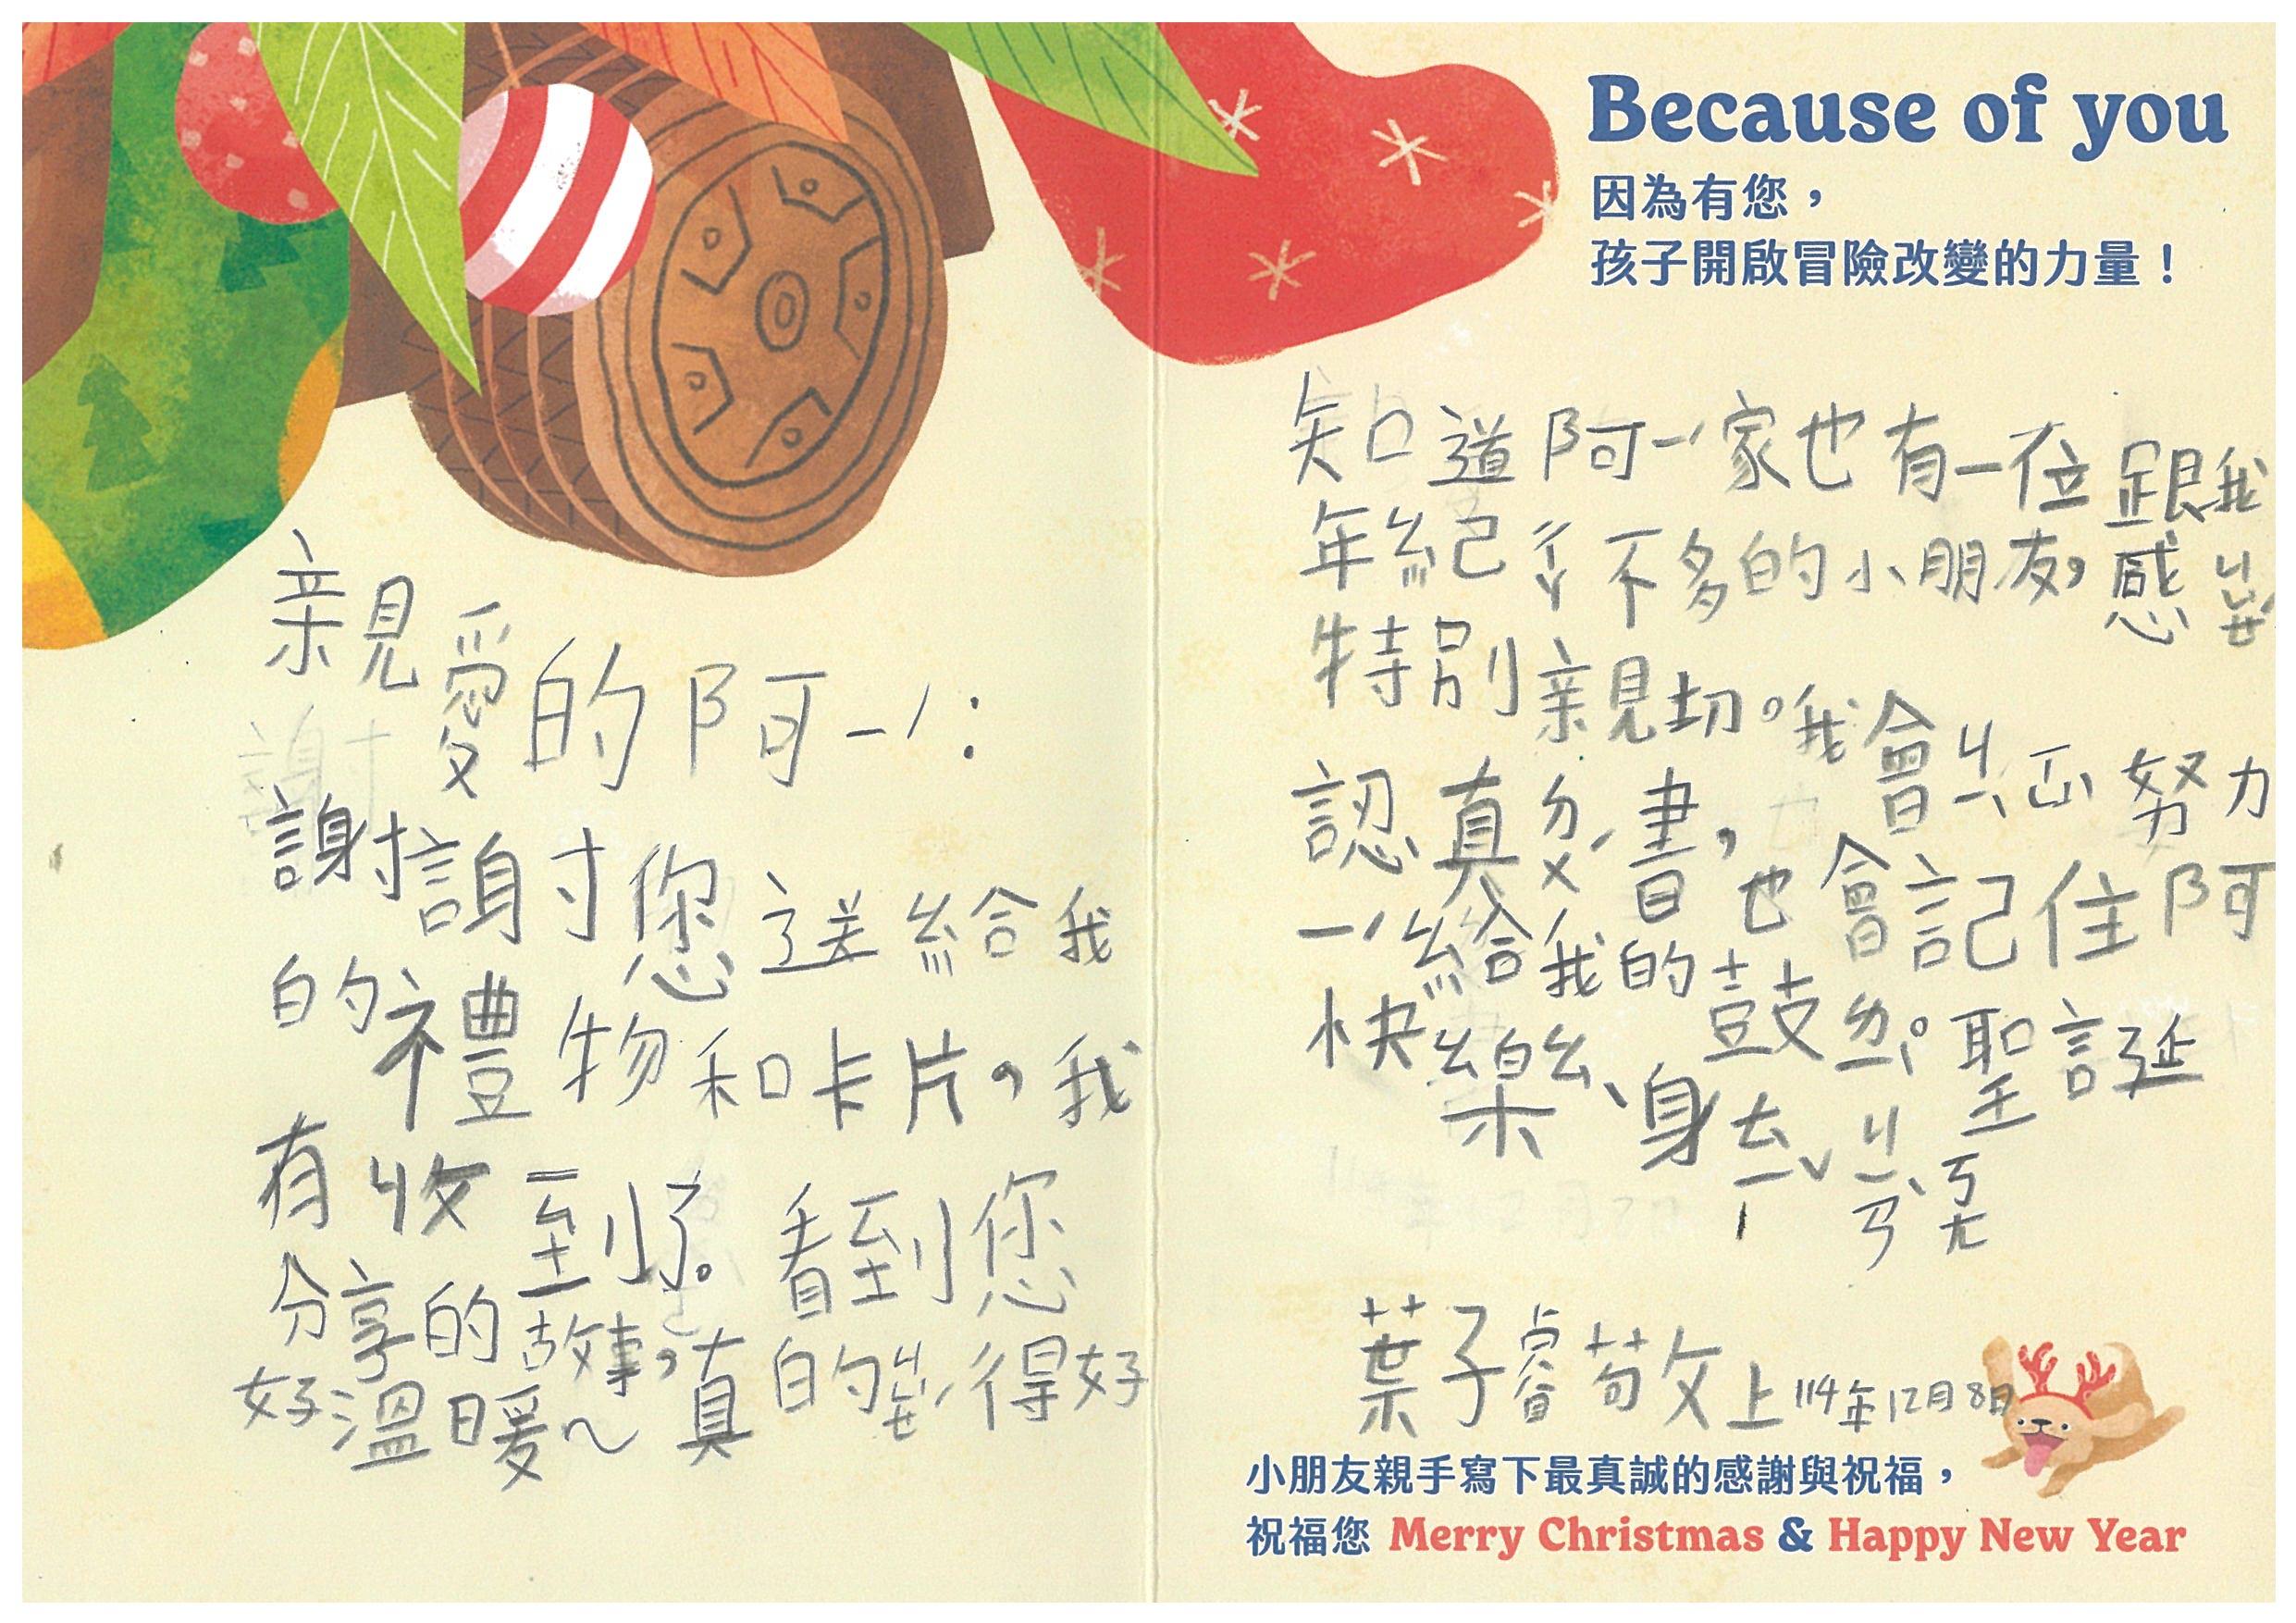 Because of you
因為有您，
孩子開啟冒險改變的力量！
親愛的阿ㄧˊ：
謝謝您送給我
的禮物和卡片，我
有收到了。看到您
分享的故事，真的ㄐㄩㄝˊ得好
好溫暖～
知道阿ㄧˊ家也有一位跟我
年紀ㄔㄚ不多的小朋友，感ㄐㄩㄝˊ
特別親切。我會ㄐㄧˋㄒㄩˋ努力
認真ㄉㄨˊ書，也會記住阿
ㄧˊ給我的鼓ㄌㄧˋ。聖誕
快樂、身ㄊㄧˇㄐㄧㄢˋㄎㄤ
葉子睿敬上 114年12月8日
小朋友親手寫下最真誠的感謝與祝福，
祝福您 Merry Christmas & Happy New Year